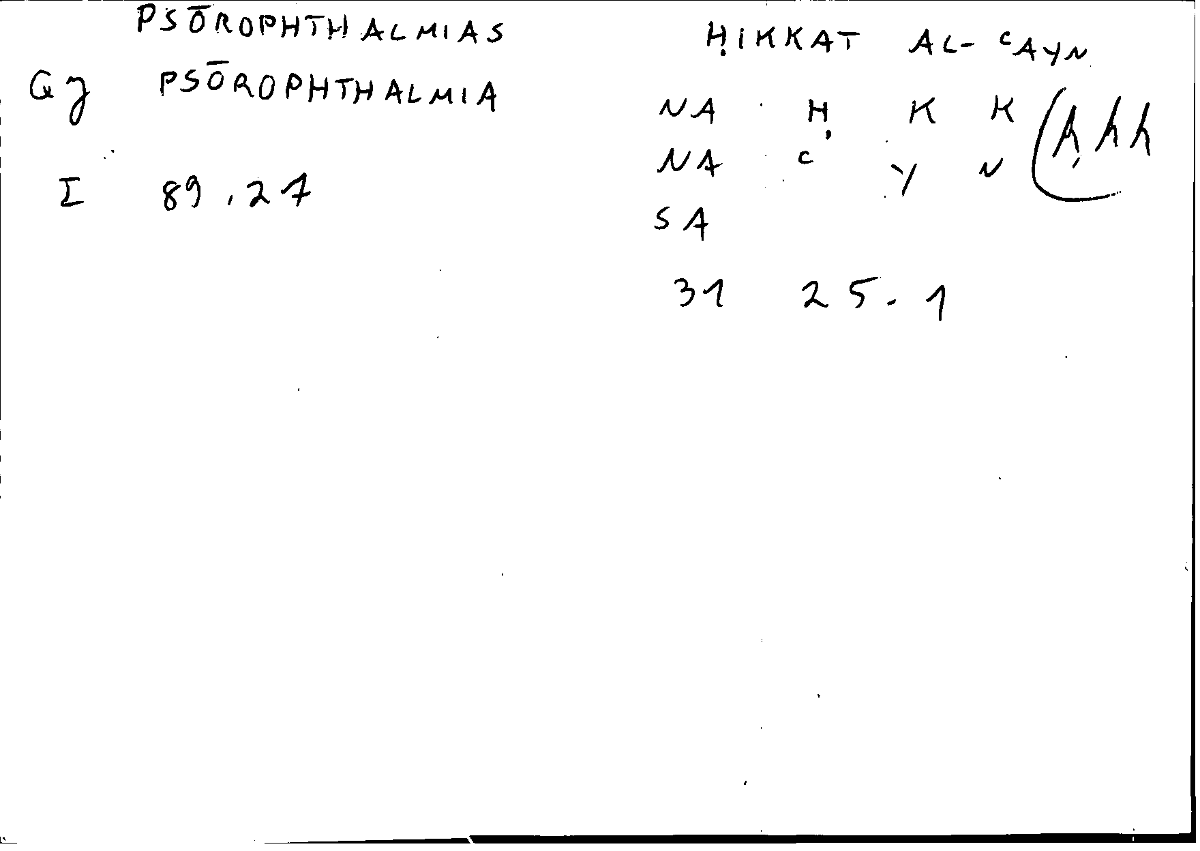 PSŌROPHTHALMIAS
Gz PSŌROPHTHALMIA
I 89.27
ḤIKKAT AL-ᶜAYN
NA Ḥ K K
NA ᶜ Y N
SA
31 25.1